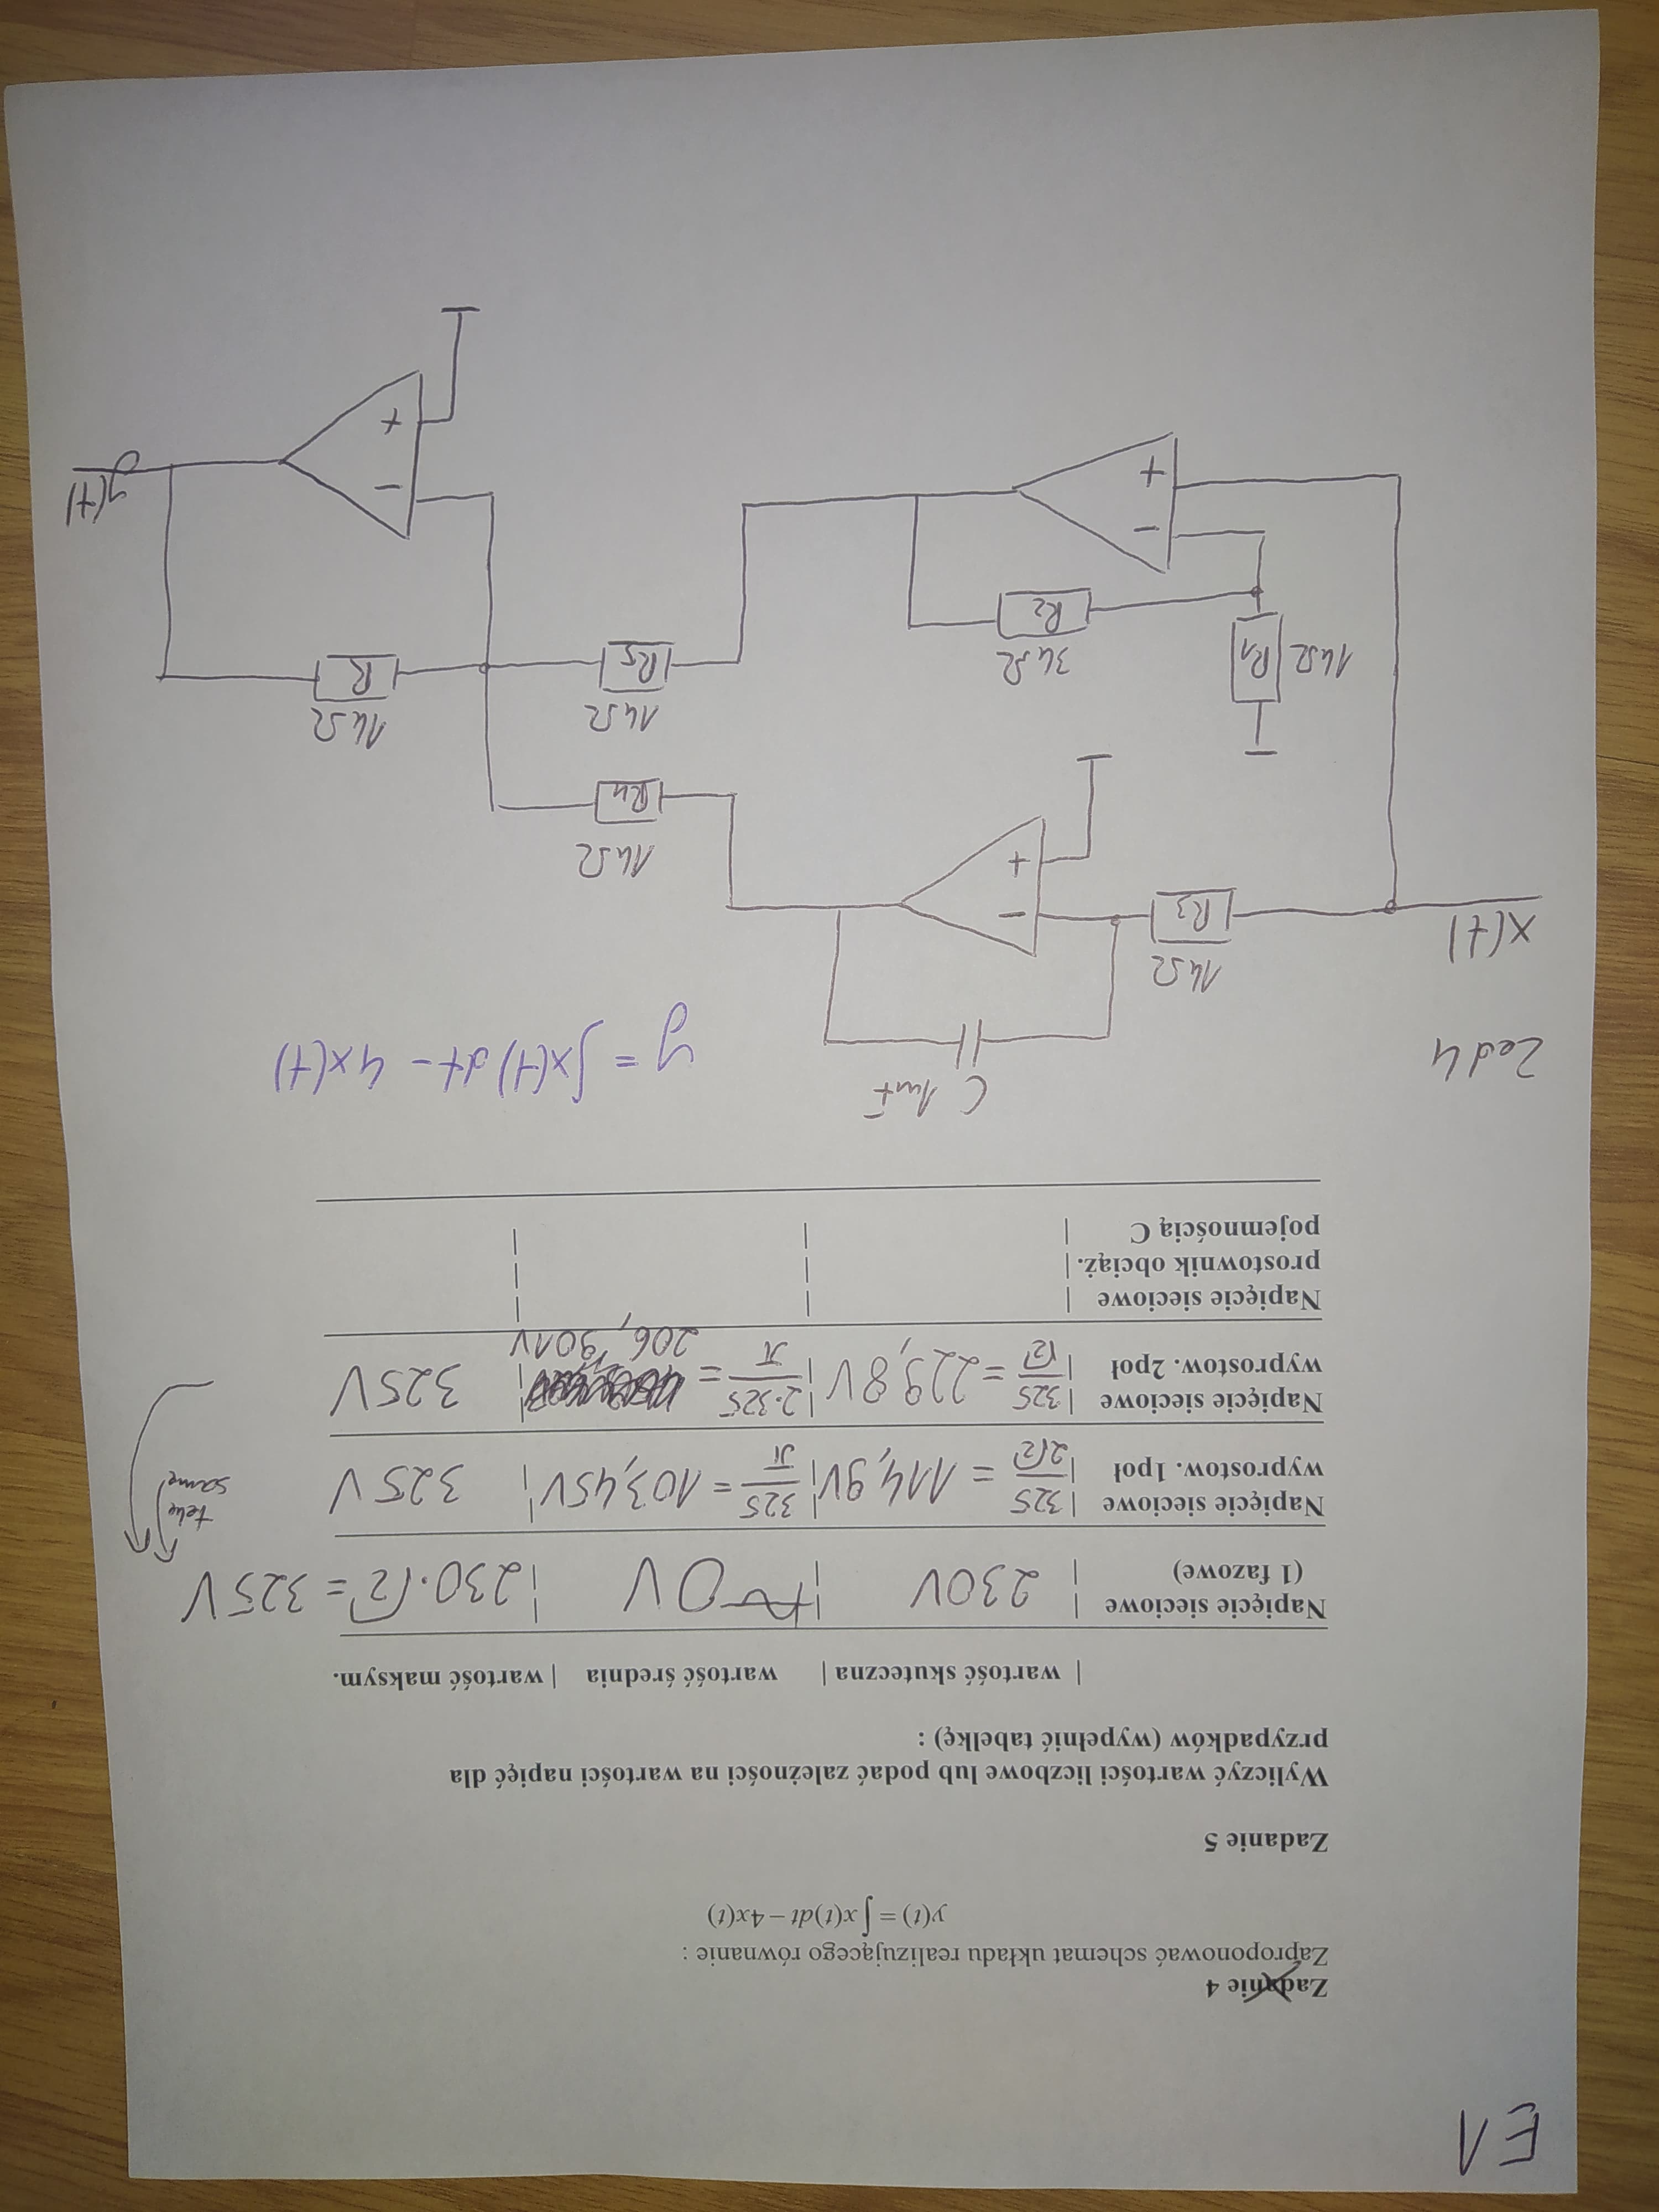 E1
Zadanie 4
Zaproponować schemat układu realizującego równanie :
y(t) = ∫ x(t)dt – 4x(t)
Zadanie 5
Wyliczyć wartości liczbowe lub podać zależności na wartości napięć dla
przypadków (wypełnić tabelkę) :
| wartość skuteczna | wartość średnia | wartość maksym.
Napięcie sieciowe | 230V | 0V | 230·√2 = 325 V
(1 fazowe) |
Napięcie sieciowe | 325/2√2 = 114,9V | 325/π = 103,45V | 325 V
wyprostow. 1poł |
takie
same
Napięcie sieciowe | 325/√2 = 229,8V | 2·325/π = 206,901V | 325V
wyprostow. 2poł |
Napięcie sieciowe |
prostownik obciąż. |
pojemnością C |
Zad 4
C 1mF
y = ∫x(t) dt - 4x(t)
x(t)
1kΩ
R3
-
+
1kΩ
R4
1kΩ
R1
3kΩ
R2
1kΩ
R5
1kΩ
R
-
+
-
+
y(t)